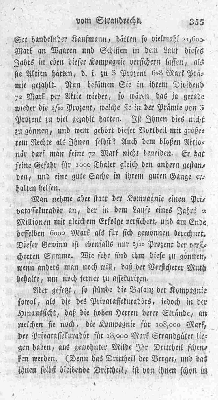 vom Strandrecht. 355
See handelnder Kaufmann, hätten so vielmal
an Waaren und Schiffen in dem Lauf dieses
Jahrs in eben dieser Compagnie versichern lassen, als
sie Aktien hatten, d. i. zu 3 Procent Mark Prä-
mie gezahlt. Nun bekamen Sie im Dividend
72 Mark per Aktie wieder, so wären das ja gerade
wieder die Procent, welche Sie in der Prämie von 3
Procent zu viel gezahlt hatten. Ist Ihnen dies nicht
genug, und wem gehört dieser Vortheil mit größe-
rem Rechte als Ihnen selbst? Auch dem bloßen Aktio-
nair darf man seine 72 Mark nicht beneiden. Er
hat seine Gefahr für 1000 Thaler gleich den andern gestan-
den, und eine gute Sache in ihrem guten Gange er-
halten helfen.
Man nehme aber statt der Compagnie einen Pri-
vatassekuradör an, der in dem Laufe eines Jahrs
Millionen mit gleichem Erfolge versichert, und am Ende
desselben 6000 Mark als für sich gewonnen berechnet.
Dieser Gewinn ist ebenfalls nur Procent der versi-
cherten Summe. Wie sehr sind ihm diese zu gönnen,
wenn anders man noch will, daß der Versicherer Muth
behalte, uns noch ferner zu assekuriren.
Aber gesetzt, so stünde die Balanz der Kompagnie
sowol, als die des Privatassekuradörs, jedoch in der
Hinaussicht, daß die hohen Herren derer Strände, an
welchen sie noch, die Kompagnie für 108,000 Mark,
der Privatassekuradör für 18,000 Mark Strandgüter lie-
gen haben, aus gewohnter Milde Ihr Dritttheil schen-
ken werden. (Denn das Dritttheil der Berger, und das
ihnen selbst bleibende Dritttheil, ist von ihnen schon in